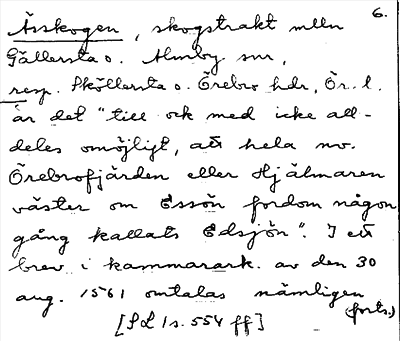 6.
Ässkogen, skogstrakt mlln
Gällersta o. Almby snr,
resp. Sköllersta o. Örebro hdr, Ör. l.
är det "till ock med icke all-
deles omöjligt, att hela nv.
Örebrofjärden eller Hjälmaren
väster om Essön fordom någon
gång kallats Edsjön". I ett
brev i kammarark. av den 30
aug. 1561 omtalas nämligen
(forts.)
[SL 1 s. 554 ff]